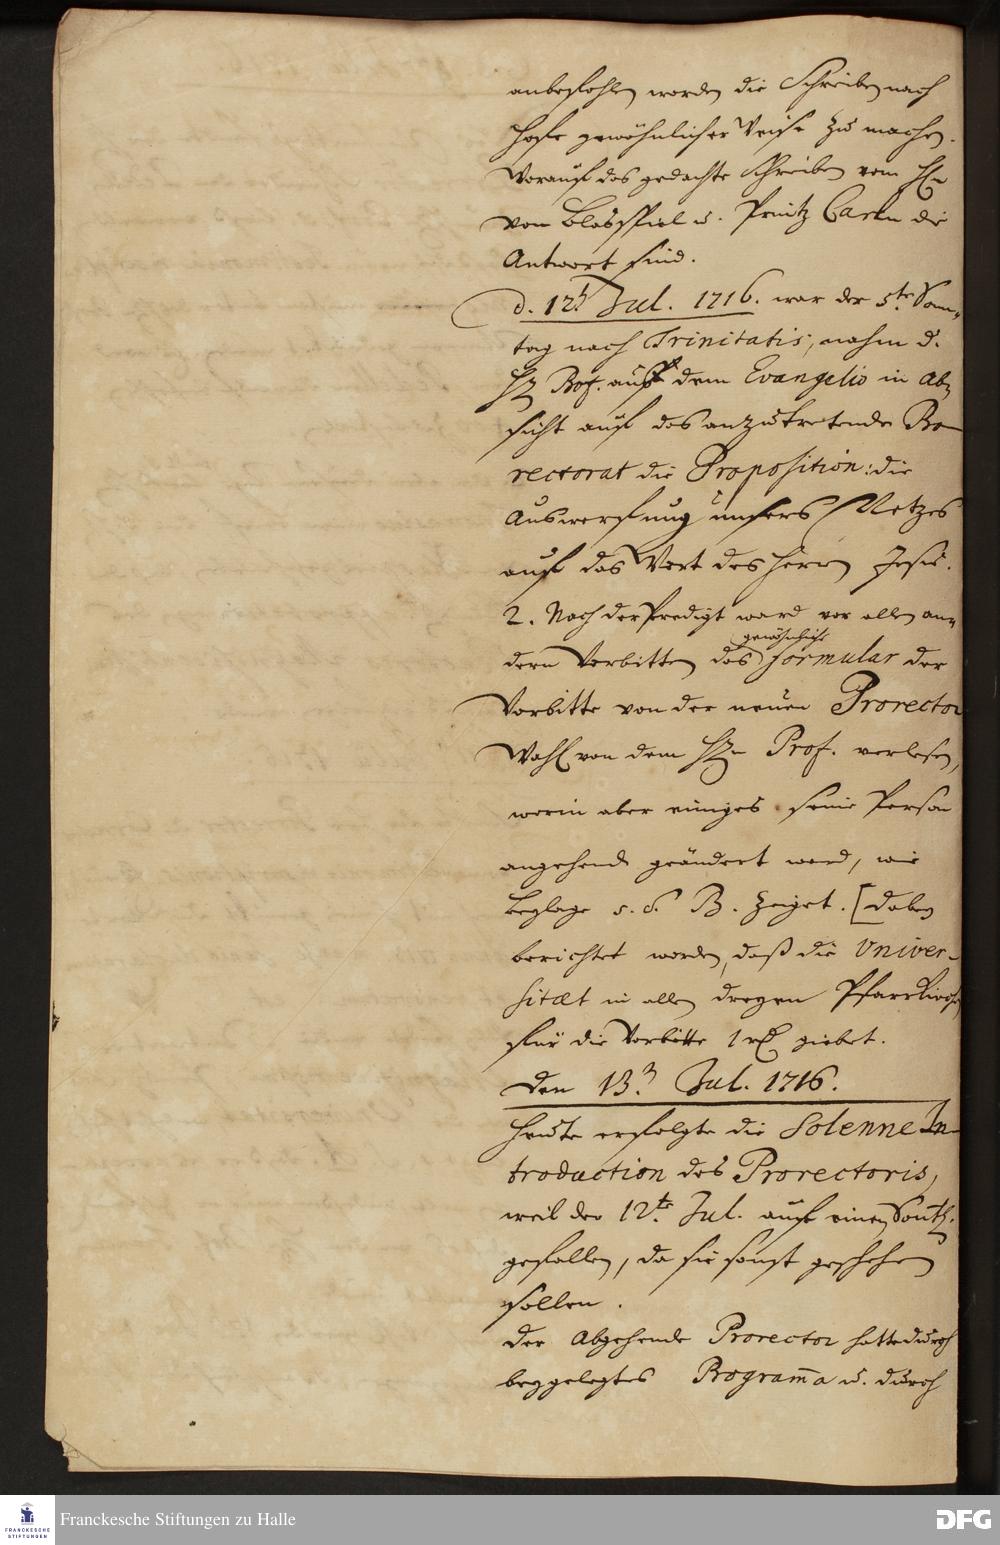 anbefohlen worden die Schreiben nach
Hofe gewöhnlicher Weise zu machen.
Worauf das gedachte Schreiben vom H.
von Blaspiel u. Printz Carln die
Antwort sind.
d. 12t Jul. 1716. war der 5te Son-
tag nach Trinitatis, nahm d.
H. Prof. auß dem Evangelio in Ab-
sicht auf das anzutretende Pro-
rectorat die Proposition: die
Auswerfung unsers Netzes
auf das Wort des Herrn Jesu.
2. Nach der Predigt ward vor allen an-
dern Vorbitten das gewöhnliche formular der
Vorbitte von der neuen Prorector
Wahl von dem H. Prof. verlesen,
worin aber einiges seine Person
angehend geändert ward, wie
Beylage s. d. B. zeiget. [Dabey
berichtet worden, daß die Univer-
sitæt in allen dreyen Pfarrkirchen
für die Vorbitte 1 rth giebet.
Den 13. Jul. 1716.
Heute erfolgte die Solenne In-
troduction des Prorectoris,
weil der 12te Jul. auf einen Sontag
gefallen, da sie sonst geschehen
sollen.
Der Abgehende Prorector hatte durch
beygelegtes Programma u. durch
Franckesche Stiftungen zu Halle
FRANCKESCHE
STIFTUNGEN
DFG